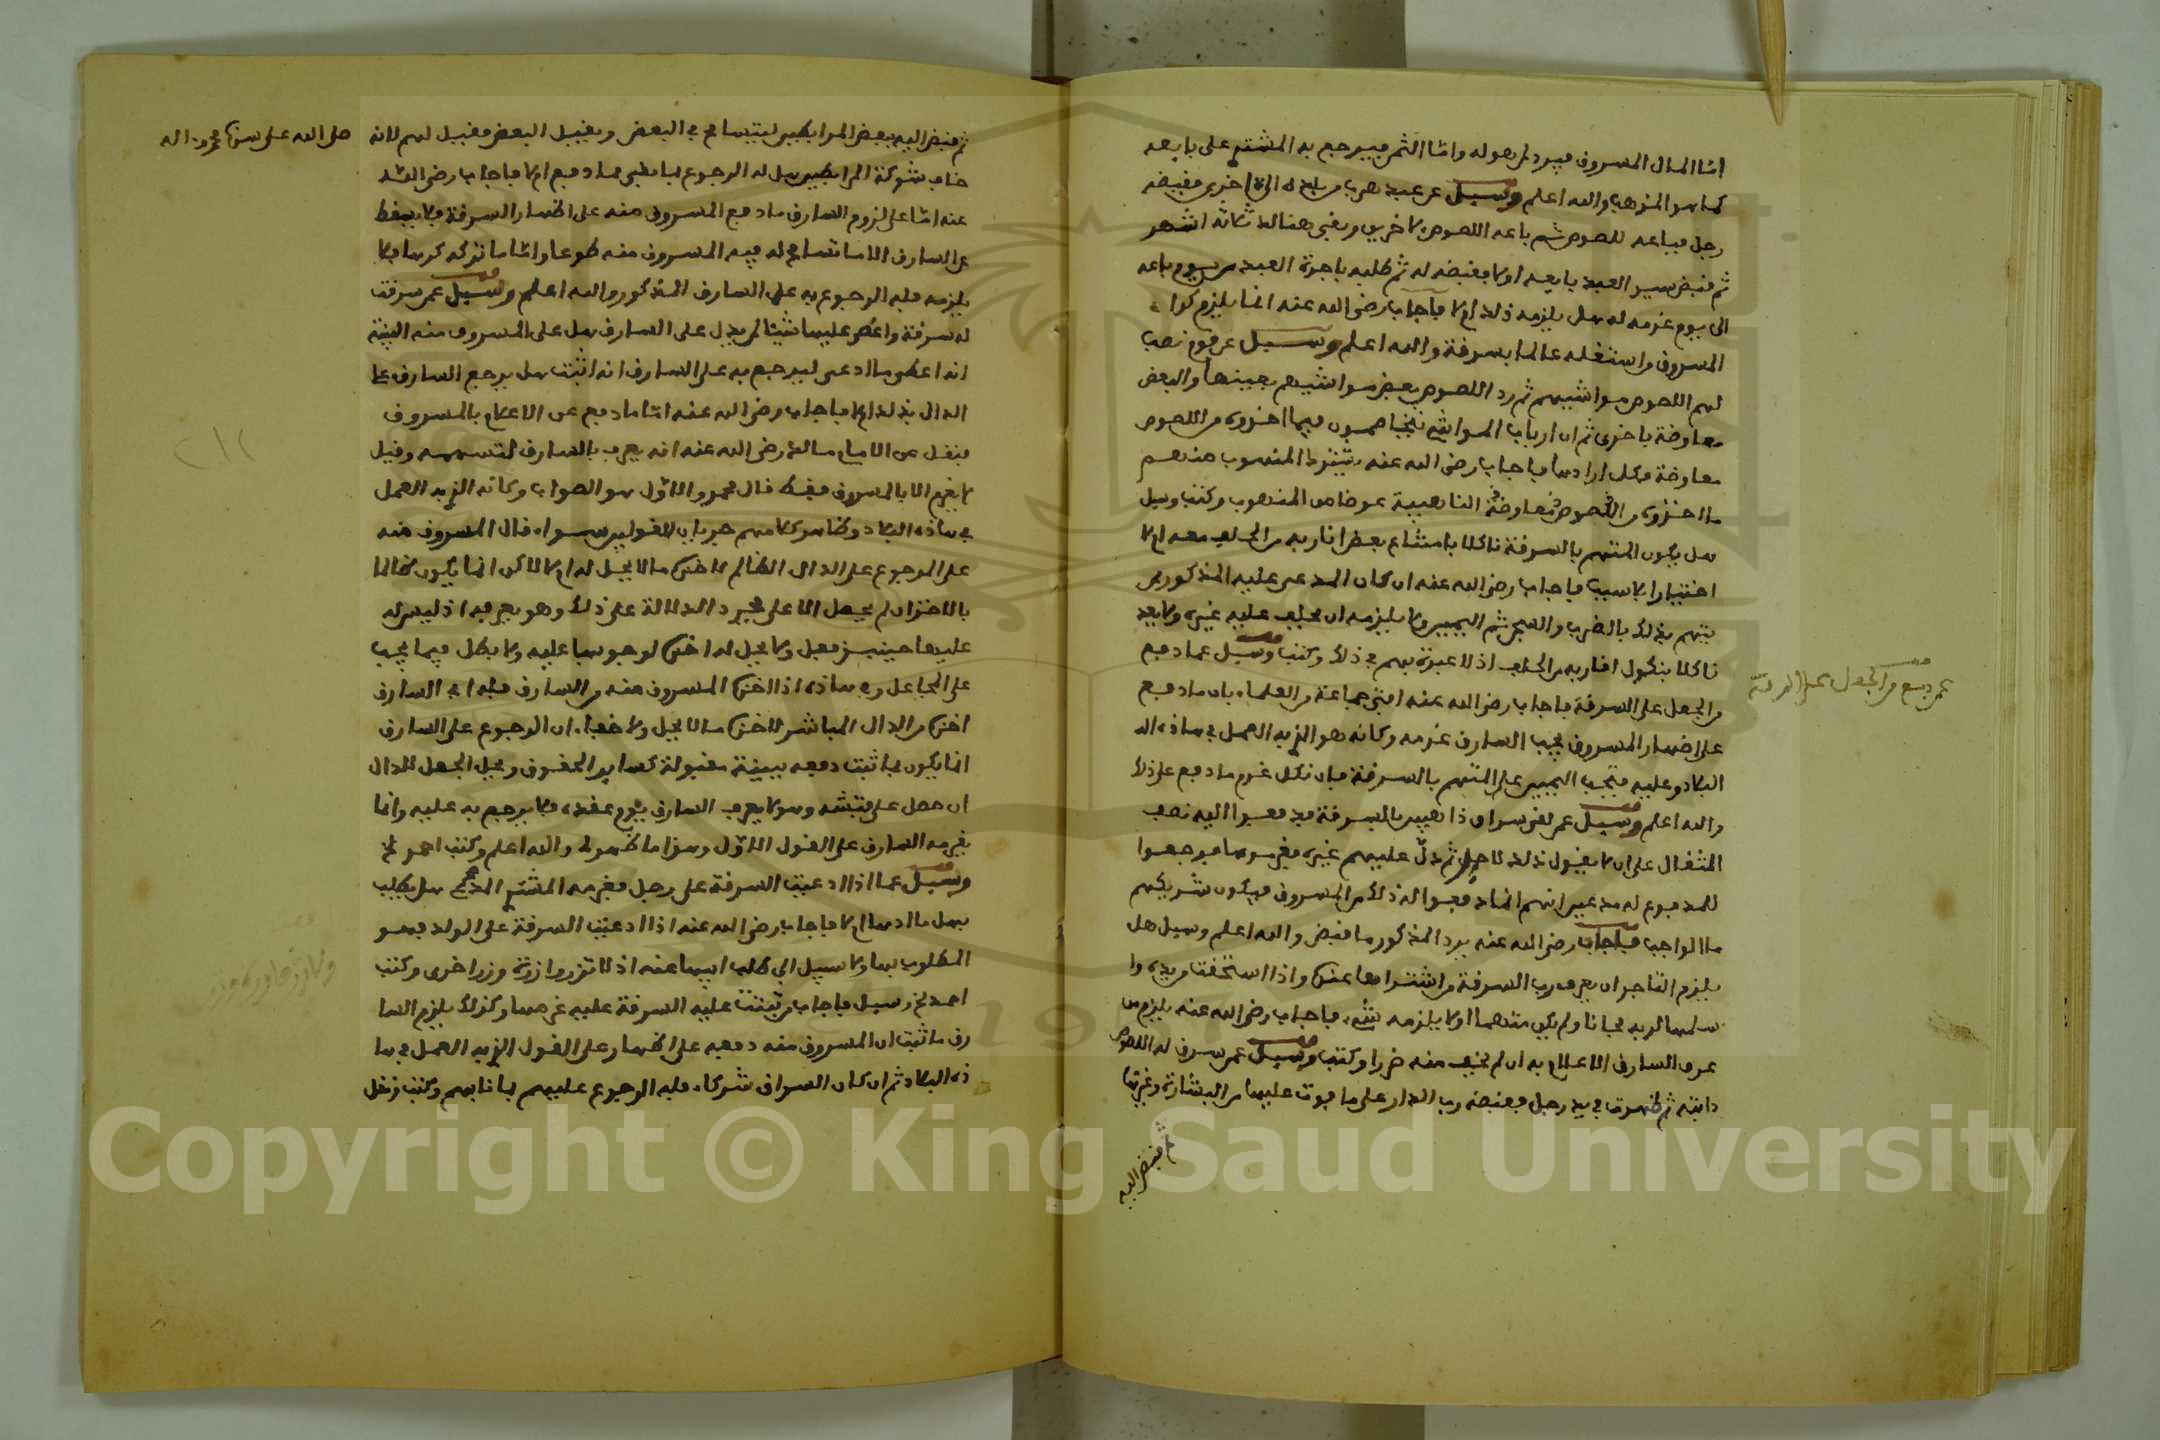 اما المال المسروق فيرد لمن هو له واما الثمن فيرجع به المشتري على بايعه
كما هو المذهب والله اعلم وسيل عن عبد هرب من بلده الى اخرى فقبضه
رجل فباعه للصوص ثم باعه اللصوص لاخرين وبقي هنالك ثلاثة اشهر
ثم قبض سيد العبد بايعه اولا فقبضه له ثم طلبه باجرة العبد من يوم باعه
الى يوم غرمه له هل يلزمه ذلك ام لا فاجاب رضي الله عنه انما يلزم كراء
المسروق من استغله عالما بسرقة والله اعلم وسيل عن قوم نهب
لهم اللصوص مواشيهم ثم رد اللصوص بعض مواشيهم بعينها والبعض
معاوضة باخرى ثم ان ارباب المواشي يتخاصمون فيما اخذوه من اللصوص
معاوضة فكل ارادها فاجاب رضي الله عنه المنهوب منهم
ما اخذوه من اللصوص معاوضة عوضا من المنهوب وكتب وسيل
هل يكون المتهم بالسرقة ناكلا بامتناع بعض اقاربه من الحلف معه ام لا
اختيارا لا سببا فاجاب رضي الله عنه ان كان المدعى عليه المذكور ممن
يتهم بذلك بالضرب والسجن ثم اليمين ولا يلزمه ان يحلف عليه غيره ولا يعد
ناكلا بنكول اقاربه من الحلف اذ لا عبرة بهم في ذلك وكتب وسيل عما دفع
من الجعل على السرقة فاجاب رضي الله عنه افتى جماعة من العلماء بان ما دفع
على اظهار المسروق يجب السارق غرمه وكانه هو الذي به العمل في هاذه ال
البلاد وعليه فتجب اليمين على المتهم بالسرقة فان نكل غرم ما دفع على ذلك
والله اعلم وسيل عمن لقي سراق ذاهبين بالسرقة فدفعوا اليه نصف
المثقال على ان لا يقول ذلك لاحد ثم دل عليهم غيره فغرموها فرجعوا
للمدفوع له مدعين انهم انما دفعوا له ذلك من المسروق فيكون شريكهم
ما الواجب فاجاب رضي الله عنه يرد المذكور ما قبض والله اعلم وسيل هل
يلزم التاجر ان يعرف رب السرقة من اشتراها عنده واذا استحقت من يده وا
سلمها لربه مجانا ولم يكن متهما اولا يلزمه شيء فاجاب رضي الله عنه يلزم من
عرف السارق الاعلام به ان لم يخف منه ضررا وكتب وسيل عمن سرق له اللصوص
دابته ثم ظهرت في يد رجل فقبضه رب الدار على ما فوت عليها من البشارة وغيرها
ثم قبض اليه
عمن دفع من الجعل على السرقة
ثم قبض اليه بعض المرابطين ليتسامح في البعض ويقبل البعض فقبل لهم لانه
خاف شوكة المرابطين هل له الرجوع لما بقي مما دفع ام لا فاجاب رضي الله
عنه اما على لزوم السارق ما دفع المسروق منه على اظهار السرقة فلا يسقط
عن السارق الا ما تسامح له فيه المسروق منه طوعا واما ما تركه كرها فلا
يلزمه فله الرجوع به على السارق المذكور والله اعلم وسيل عمن سرقت
له سرقة واعطى عليها شيئا لمن يدل على السارق هل على المسروق منه البينة
انه اعطى ما ادعى ليرجع به على السارق انه اثبت هل يرجع السارق على
الدال بذلك ام لا فاجاب رضي الله عنه اما ما دفع عن الاعلام بالمسروق
فنقل عن الامام مالك رضي الله عنه انه يعرف بالسارق وقيل
لا يغرم الا بالمسروق فقط قال محمد والاول هو الصواب وكانه الذي به العمل
في هاذه البلاد وظاهر كلامهم جريان القولين سواء قال المسروق منه
على الرجوع على الدال الظالم لاخذه ما لا يحل له ام لا لاكن انما يكون ظالما
بالاخذ ان لم يجعل الا على مجرد الدلالة على ذلك وهو يعرفه اذ ليس له
عليها حينيذ فعل ولا يحل له اخذه لوجوبها عليه ولا بطل فيما يجب
على الجاعل وهاذه اذا اخذه المسروق منه من السارق فله اي السارق
اخذه من الدال المباشر لاخذه ما لا يحل ولا خفاء ان الرجوع على السارق
انما يكون بما ثبت دفعه ببينة مقبولة كساير الحقوق ويحل الجعل للدال
ان جعل على فتشه وهو لا يعرف السارق يوم عقده فلا يرجع به عليه وانما
يغرمه السارق على القول الاول وهذا ما ظهر لي والله اعلم وكتب احمد لخ
وسيل عما اذا ادعيت السرقة على رجل فغرمه المشتري المدعي هل يطلب
بهل ما ادعاه ام لا فاجاب رضي الله عنه اذا ادعيت السرقة على الولد فهو
المطلوب بها ولا سبيل الى طلب ابيها عنه اذ لا تزر وازرة وزر اخرى وكتب
احمد لخ وسيل فاجاب من ثبتت عليه السرقة عليه غرمها وكذلك يلزم السا
رق ما ثبت ان المسروق منه دفعه على اظهار وعلى القول الذي به العمل في ها
ذه البلاد ثم ان كان السراق شركاء فله الرجوع عليهم بما نابهم وكتب ونقل
صلى الله على سيدنا محمد واله